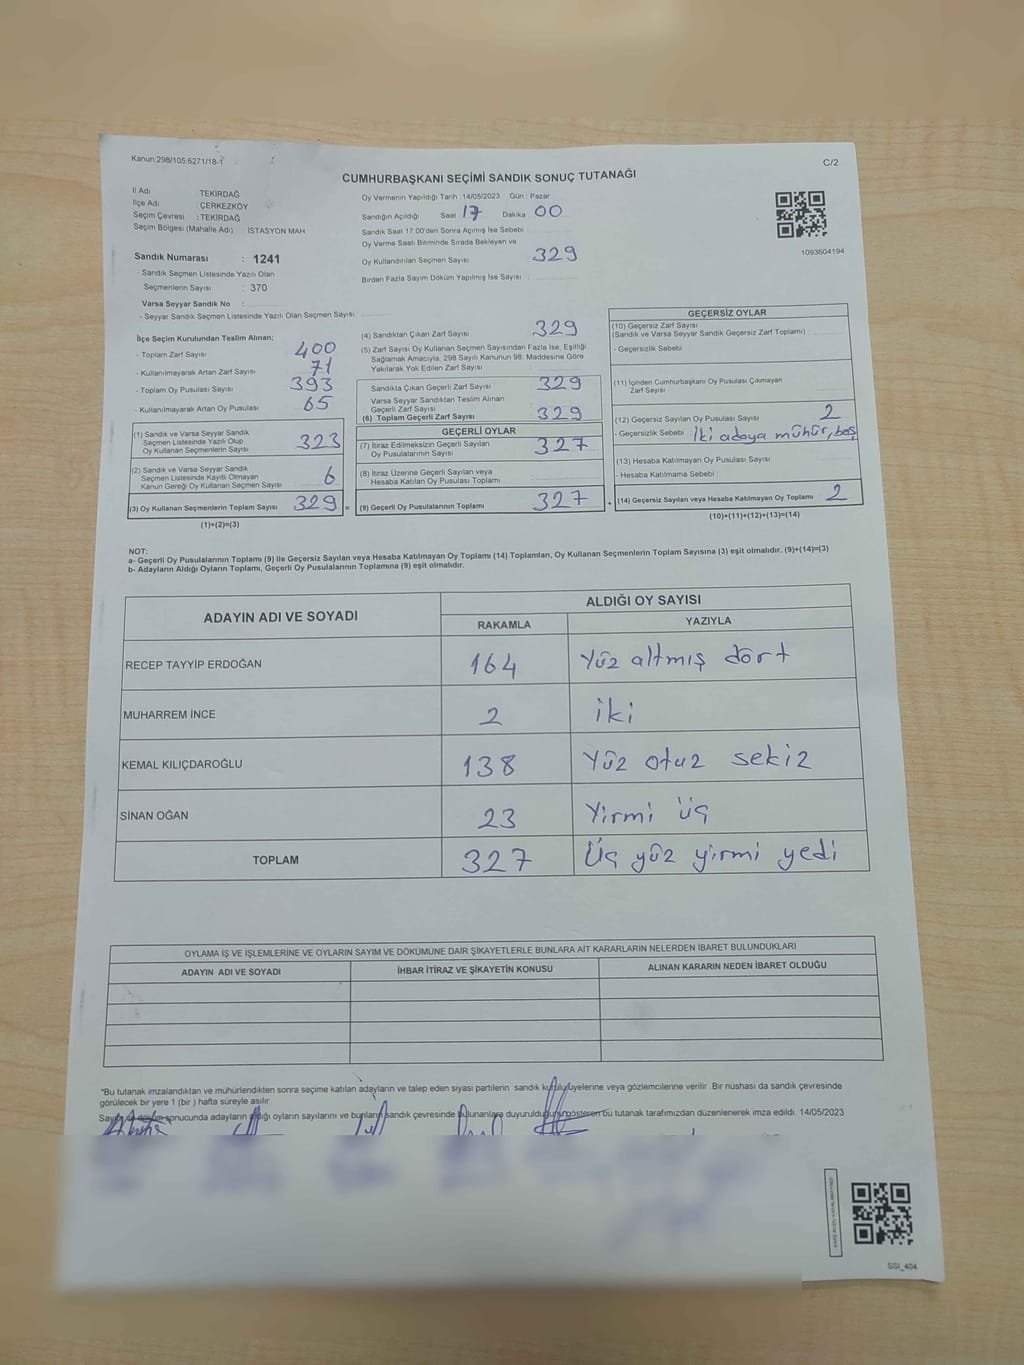 Kanun:298/105,6271/18-1
C/2
CUMHURBAŞKANI SEÇİMİ SANDIK SONUÇ TUTANAĞI
İl Adı TEKİRDAĞ
İlçe Adı : ÇERKEZKÖY
Seçim Çevresi : TEKİRDAĞ
Seçim Bölgesi (Mahalle Adı) : İSTASYON MAH.
Sandık Numarası : 1241
- Sandık Seçmen Listesinde Yazılı Olan
Seçmenlerin Sayısı : 370
Varsa Seyyar Sandık No :
- Seyyar Sandık Seçmen Listesinde Yazılı Olan Seçmen Sayısı :
Oy Vermenin Yapıldığı Tarih :14/05/2023 Gün : Pazar
Sandığın Açıldığı Saat 17 Dakika 00
Sandık Saat 17:00'den Sonra Açılmış İse Sebebi :
Oy Verme Saati Bitiminde Sırada Bekleyen ve
Oy Kullandırılan Seçmen Sayısı : 329
Birden Fazla Sayım Döküm Yapılmış İse Sayısı :
1093604194
İlçe Seçim Kurulundan Teslim Alınan;
- Toplam Zarf Sayısı : 400
- Kullanılmayarak Artan Zarf Sayısı : 71
- Toplam Oy Pusulası Sayısı : 393
- Kullanılmayarak Artan Oy Pusulası : 65
(1) Sandık ve Varsa Seyyar Sandık
Seçmen Listesinde Yazılı Olup
Oy Kullanan Seçmenlerin Sayısı 323
(2) Sandık ve Varsa Seyyar Sandık
Seçmen Listesinde Kayıtlı Olmayan
Kanun Gereği Oy Kullanan Seçmen Sayısı 6
(3) Oy Kullanan Seçmenlerin Toplam Sayısı 329 =
(1)+(2)=(3)
(4) Sandıktan Çıkan Zarf Sayısı : 329
(5) Zarf Sayısı Oy Kullanan Seçmen Sayısından Fazla İse, Eşitliği
Sağlamak Amacıyla, 298 Sayılı Kanunun 98. Maddesine Göre
Yakılarak Yok Edilen Zarf Sayısı :
Sandıkta Çıkan Geçerli Zarf Sayısı 329
Varsa Seyyar Sandıktan Teslim Alınan
Geçerli Zarf Sayısı
(6) Toplam Geçerli Zarf Sayısı 329
GEÇERLİ OYLAR
(7) İtiraz Edilmeksizin Geçerli Sayılan
Oy Pusulasının Sayısı 327
(8) İtiraz Üzerine Geçerli Sayılan veya
Hesaba Katılan Oy Pusulası Toplamı
(9) Geçerli Oy Pusulalarının Toplamı 327 +
GEÇERSİZ OYLAR
(10) Geçersiz Zarf Sayısı
(Sandık ve Varsa Seyyar Sandık Geçersiz Zarf Toplamı) :
- Geçersizlik Sebebi :
(11) İçinden Cumhurbaşkanı Oy Pusulası Çıkmayan
Zarf Sayısı :
(12) Geçersiz Sayılan Oy Pusulası Sayısı : 2
- Geçersizlik Sebebi : İki adaya mühür, boş
(13) Hesaba Katılmayan Oy Pusulası Sayısı :
- Hesaba Katılmama Sebebi :
(14) Geçersiz Sayılan veya Hesaba Katılmayan Oy Toplamı 2
(10)+(11)+(12)+(13)=(14)
NOT:
a- Geçerli Oy Pusulalarının Toplamı (9) ile Geçersiz Sayılan veya Hesaba Katılmayan Oy Toplamı (14) Toplamları, Oy Kullanan Seçmenlerin Toplam Sayısına (3) eşit olmalıdır. (9)+(14)=(3)
b- Adayların Aldığı Oyların Toplamı, Geçerli Oy Pusulalarının Toplamına (9) eşit olmalıdır.
ADAYIN ADI VE SOYADI ALDIĞI OY SAYISI
RAKAMLA YAZIYLA
RECEP TAYYİP ERDOĞAN 164 Yüz altmış dört
MUHARREM İNCE 2 iki
KEMAL KILIÇDAROĞLU 138 Yüz otuz sekiz
SİNAN OĞAN 23 Yirmi üç
TOPLAM 327 Üç yüz yirmi yedi
OYLAMA İŞ VE İŞLEMLERİNE VE OYLARIN SAYIM VE DÖKÜMÜNE DAİR ŞİKAYETLERLE BUNLARA AİT KARARLARIN NELERDEN İBARET BULUNDUKLARI
ADAYIN ADI VE SOYADI İHBAR İTİRAZ VE ŞİKAYETİN KONUSU ALINAN KARARIN NEDEN İBARET OLDUĞU
*Bu tutanak imzalandıktan ve mühürlendikten sonra seçime katılan adayların ve talep eden siyasi partilerin sandık kurulu üyelerine veya gözlemcilerine verilir. Bir nüshası da sandık çevresinde
görülecek bir yere 1 (bir ) hafta süreyle asılır.
Sayım ve döküm sonucunda adayların aldığı oyların sayılarını ve bunların sandık çevresinde bulunanlara duyurulduğunu gösteren bu tutanak tarafımızdan düzenlenerek imza edildi. 14/05/2023
SSI_404